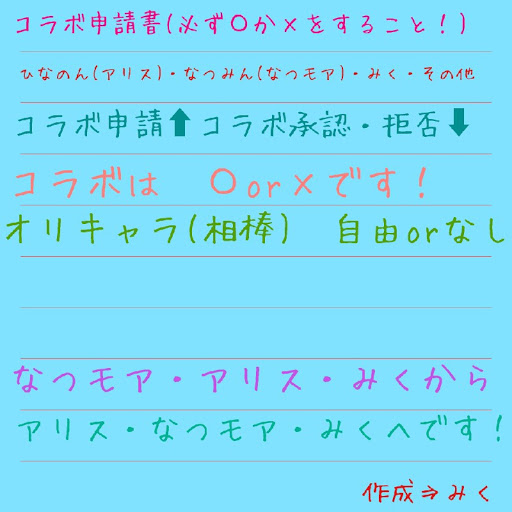 コラボ申請書(必ず〇か×をすること！)
ひなのん(アリス)・なつみん(なつモア)・みく・その他
コラボ申請⬆コラボ承認・拒否⬇
コラボは　〇or×です！
オリキャラ(相棒)　自由orなし
なつモア・アリス・みくから
アリス・なつモア・みくへです！
作成⇒みく